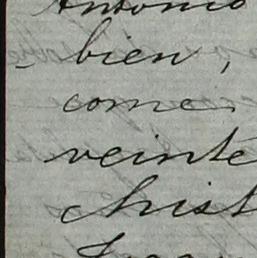 Antonio
bien,
come
veinte
Christ